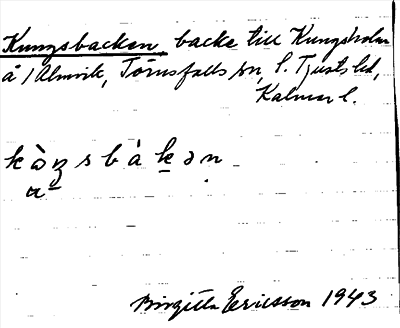 Kungsbacken backe till Kungsholm
å / Almvik, Törnsfalls sn, S. Tjusts hd,
Kalmar l.
Birgitta Ericsson 1943